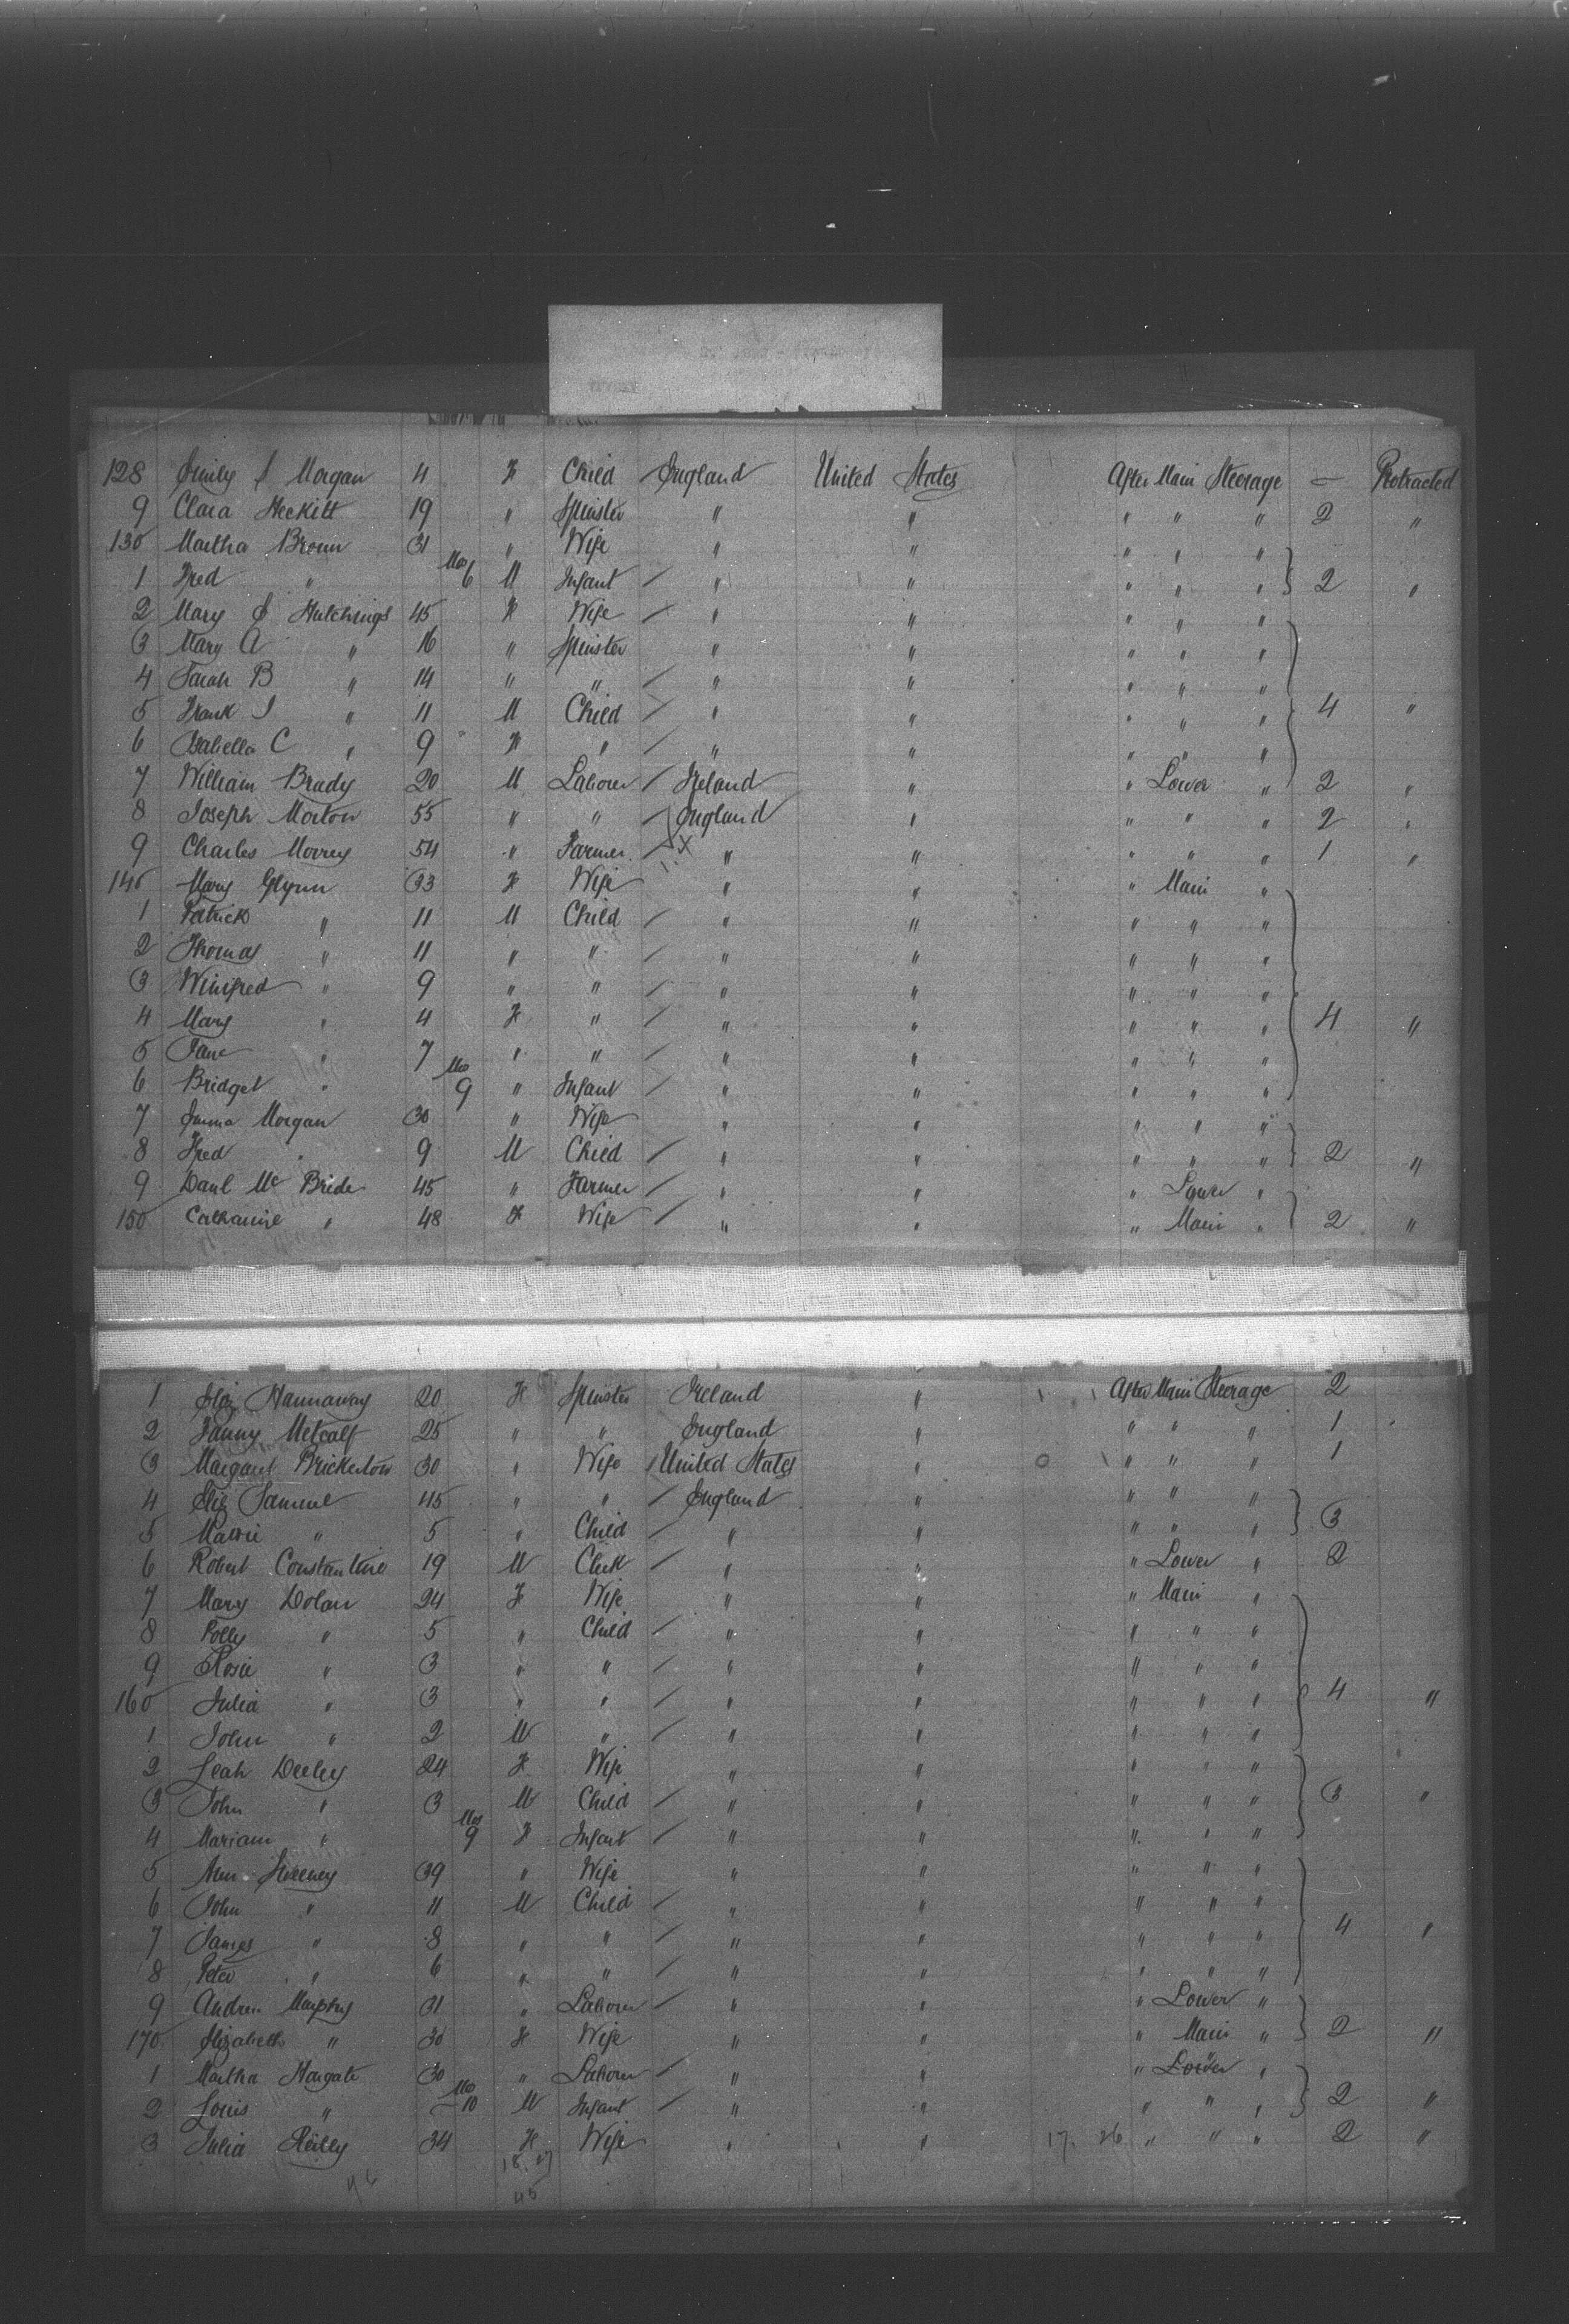 128 Emily S Morgan 4 F Child England United States After Main Steerage — Protracted
9 Clara Heckitt 19 " Spinster " " " " " 2 "
130 Martha Brown 31 " Wife " " " " "
1 Fred " Mos 6 M Infant / " " " " " 2 "
2 Mary E Hutchings 45 F Wife / " " " " "
3 Mary A " 16 " Spinster " " " " "
4 Sarah B " 14 " " / " " " " "
5 Frank J " 11 M Child / " " " " " 4 "
6 Isabella C " 9 F " / " " " " "
7 William Brady 20 M Laborer / Ireland " " Lower " 2 "
8 Joseph Morton 55 " " / England " " " " 2 "
9 Charles Morrey 54 " Farmer / " " " " " 1 "
140 Mary Glynn 33 F Wife " " " Main "
1 Patrick " 11 M Child / " " " " "
2 Thomas " 11 " " / " " " " "
3 Winifred " 9 " " / " " " " "
4 Mary " 4 F " / " " " " " 4 "
5 Jane " 7 " " / " " " " "
6 Bridget " Mos 9 " Infant / " " " " "
7 Emma Morgan 30 " Wife " " " " "
8 Fred " 9 M Child / " " " " " 2 "
9 Danl Mc Bride 45 " Farmer / " " " Lower "
150 Catharine " 48 F Wife / " " " Main " 2 "
1 Eliz Hannaway 20 F Spinster Ireland " After Main Steerage 2
2 Fanny Metcalf 25 " " England " " " " 1
3 Margaret Brickerton 30 " Wife / United States " " " " 1
4 Eliz Samuel 45 " " / England " " " "
5 " 5 " Child / " " " " " 3
6 Robert Constantine 19 M Clerk / " " " Lower " 2
7 Mary Dolan 24 F Wife " " " Main "
8 Polly " 5 " Child / " " " " "
9 Rosie " 3 " " / " " " " "
160 Julia " 3 " " / " " " " " 4 "
1 John " 2 M " / " " " " "
2 Leah Deeley 24 F Wife " " " " "
3 John " 3 M Child / " " " " " 3 "
4 Mariam " Mos 9 F Infant / " " " " "
5 Ann Sweeney 39 " Wife " " " " "
6 John " 11 M Child / " " " " "
7 James " 8 " " / " " " " " 4 "
8 Peter " 6 " " / " " " " "
9 Andrew Murphy 31 " Laborer / " " " Lower "
170 Elizabeth " 30 F Wife " " " Main " 2 "
1 Martha Hargate 30 " Laborer / " " " Lower "
2 Louis " Mos 10 M Infant / " " " " " 2 "
3 Julia Reilly 34 F Wife " " " " " 2 "